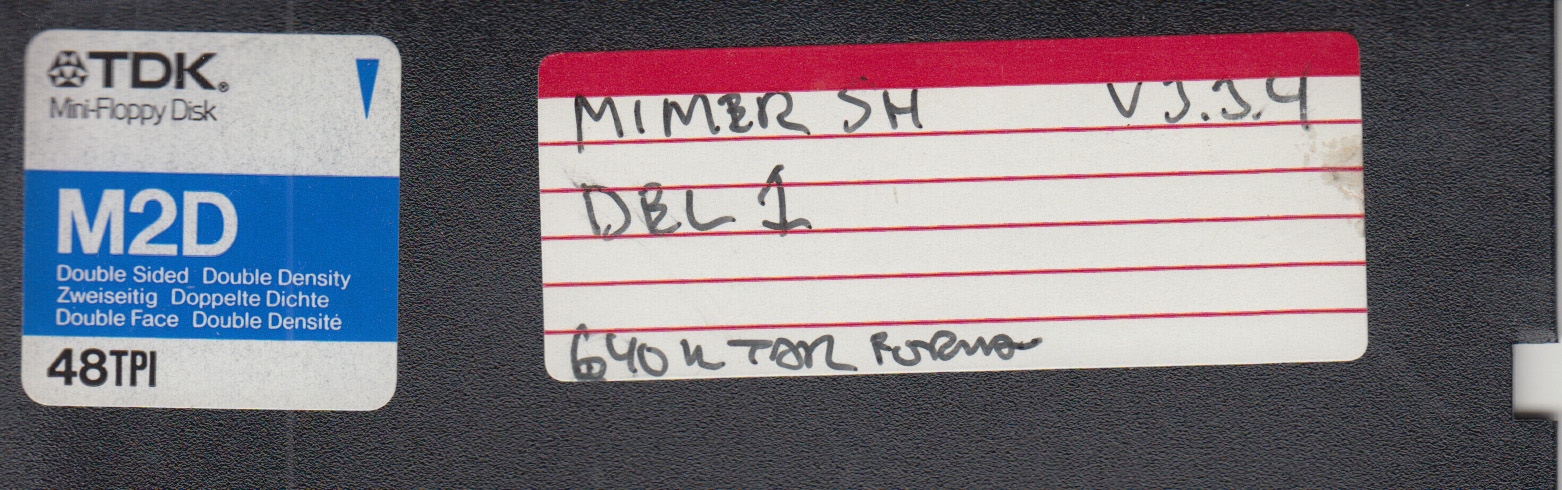 TDK®
Mini-Floppy Disk
M2D
Double Sided Double Density
Zweiseitig Doppelte Dichte
Double Face Double Densité
48TPI
MIMER SH V3.3.4
DEL 1
640 K TAR FORMA